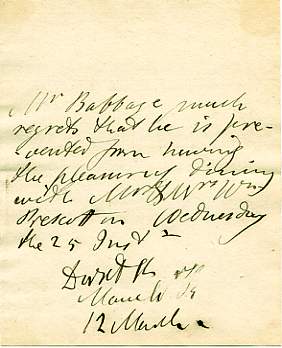 Mr Babbage much
regrets that he is pre-
vented from having
the pleasure of dining
with Mr & Mrs Wm
Prescott on Wednesday
the 25 Inst
Dorset St
12 March